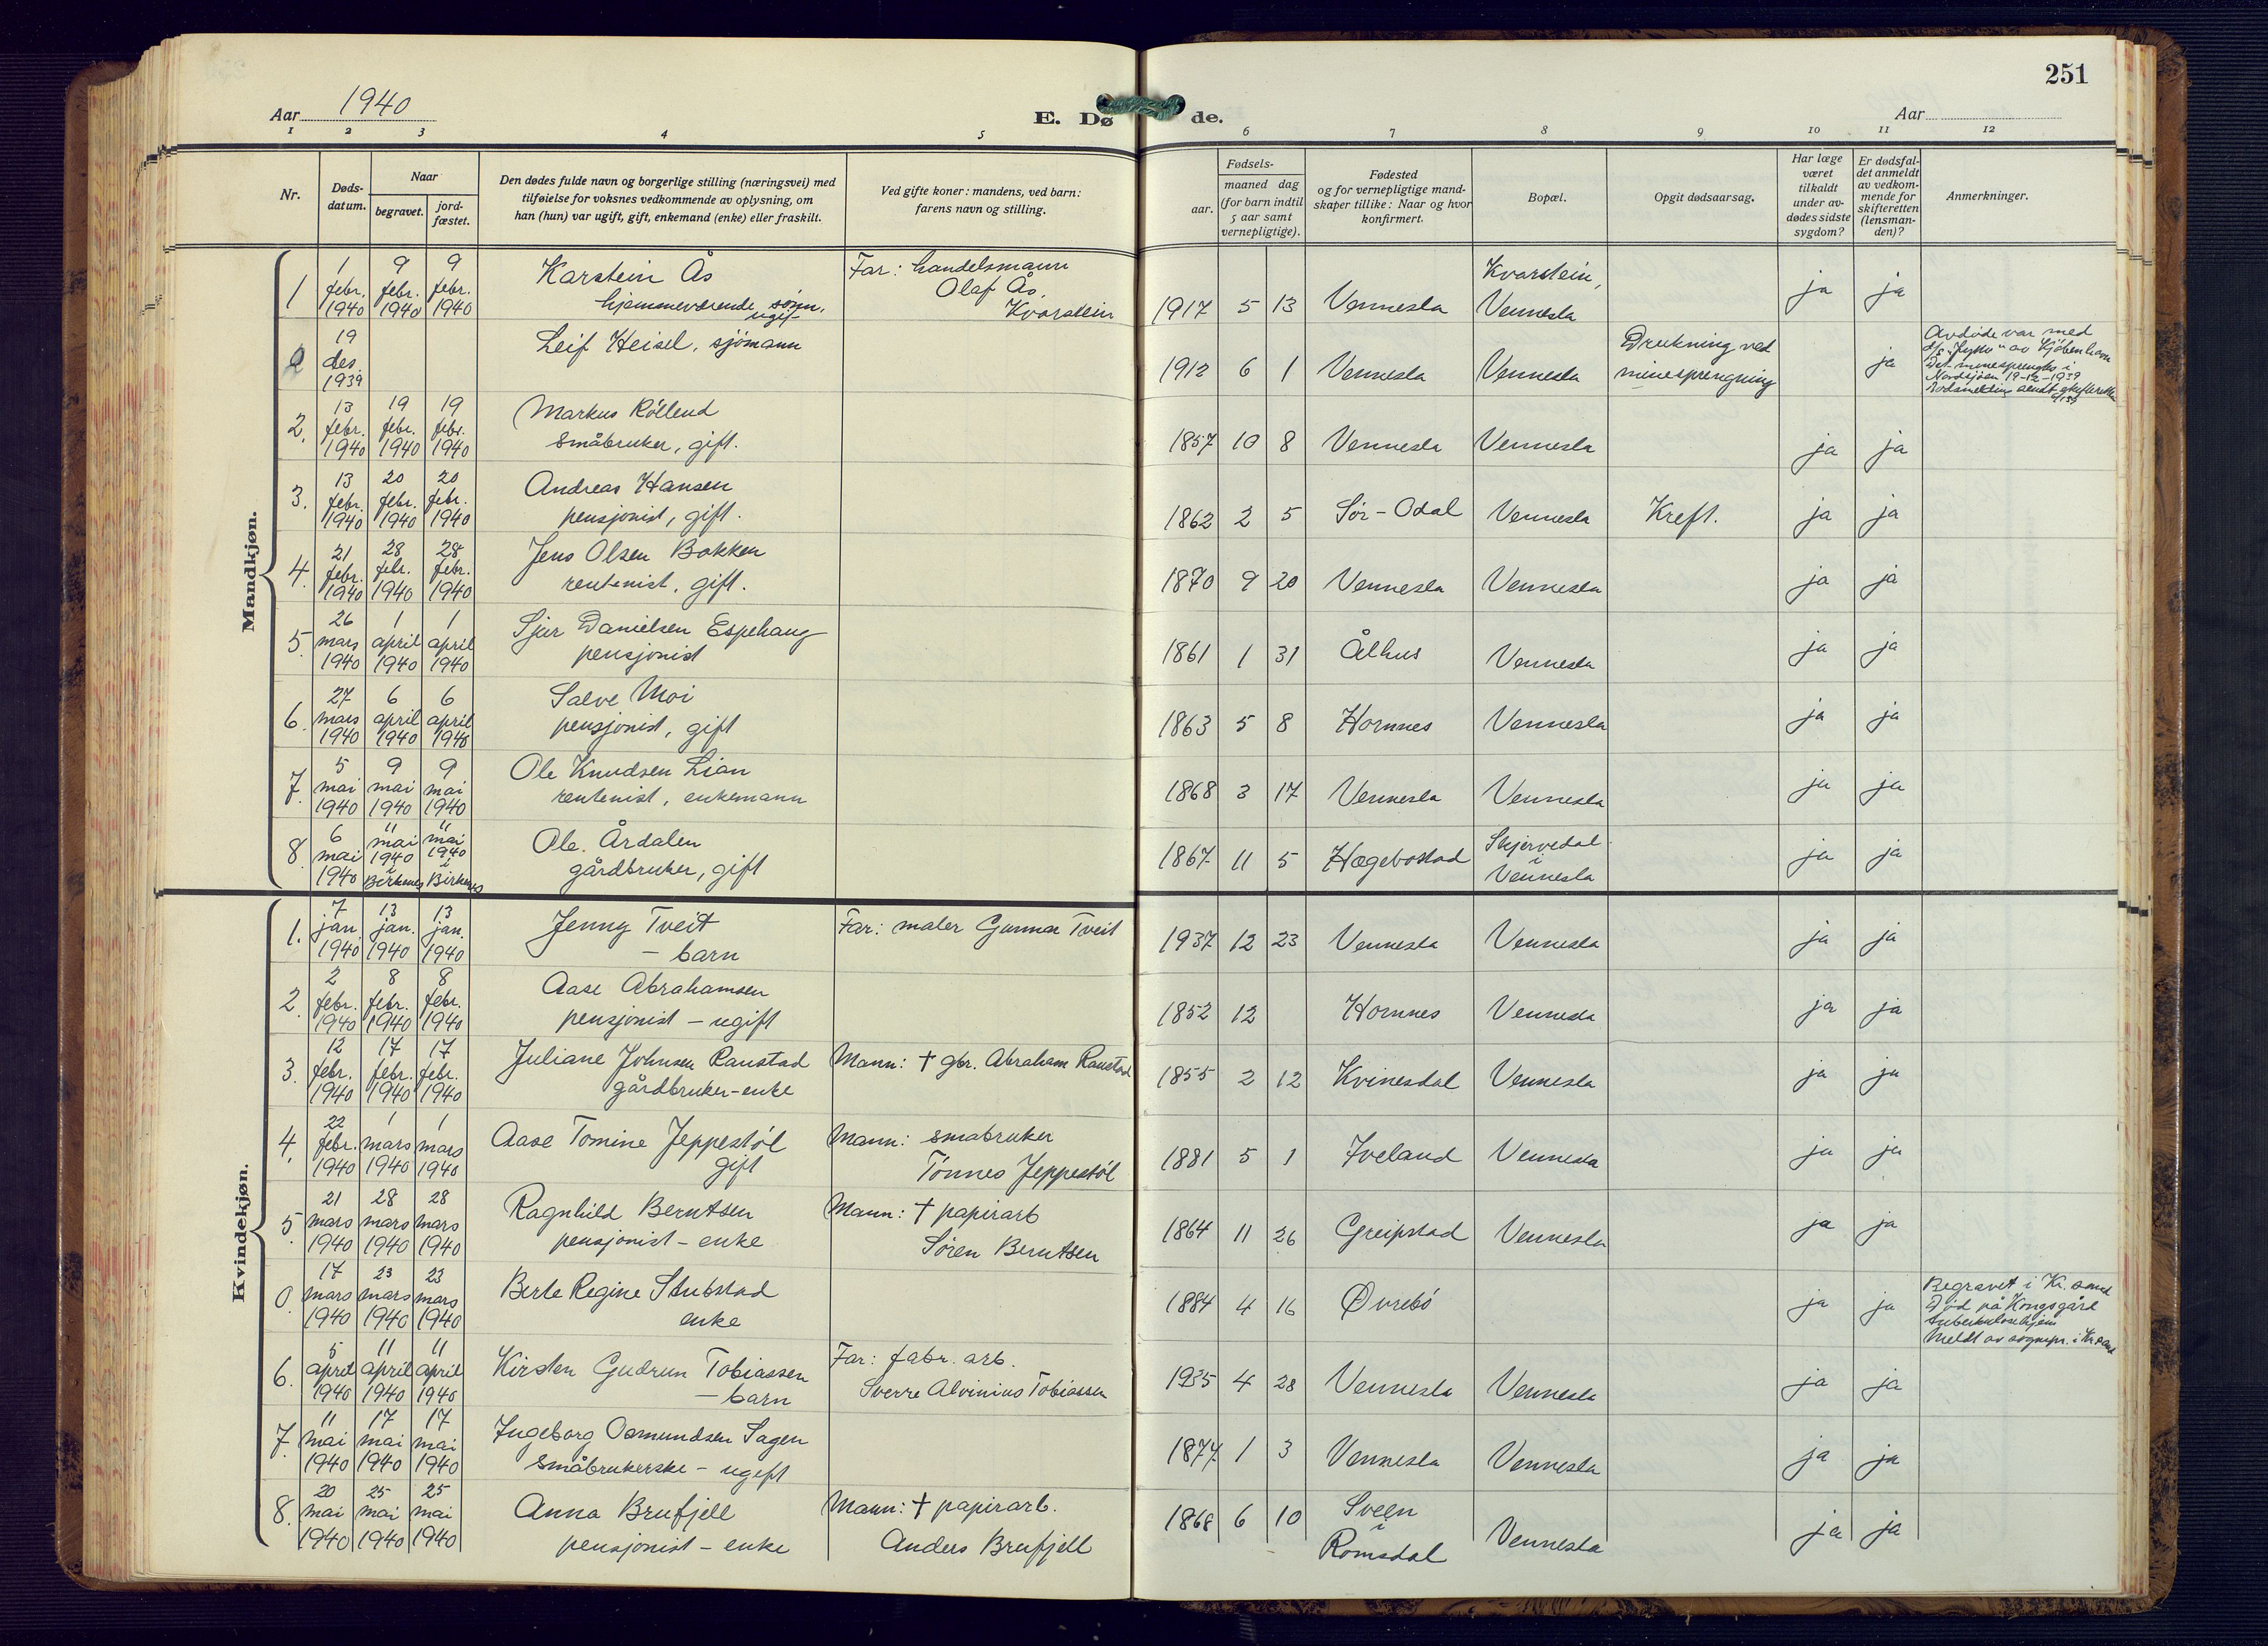 251
Aar 1940
E. Døde.
Aar
1 2 3 4 5 6 7 8 9 10 11 12
Nr.
Døds-
datum.
Naar
begravet.
jord-
fæstet.
Den dødes fulde navn og borgerlige stilling (næringsvei) med
tilføielse for voksnes vedkommende av oplysning, om
han (hun) var ugift, gift, enkemand (enke) eller fraskilt.
Ved gifte koner: mandens, ved barn:
farens navn og stilling.
Fødsels-
aar.
maaned dag
(for barn indtil
5 aar samt
vernepligtige).
Fødested
og for vernepligtige mand-
skaper tillike: Naar og hvor
konfirmert.
Bopæl.
Opgit dødsaarsag.
Har læge
været
tilkaldt
under av-
dødes sidste
sygdom?
Er dødsfal-
det anmeldt
av vedkom-
mende for
skifteretten
(lensman-
den)?
Anmerkninger.
Mandkjøn.
1 1 febr. 1940 9 febr. 1940 9 febr. 1940
Karstein Ås
hjemmeværende sønn,
ugift
Far: handelsmann
Olaf Ås,
Kvarstein
1917 5 13 Vennesla
Kvarstein,
Vennesla
ja ja
19 des. 1939
Leif Heisel, sjömann
1912 6 1 Vennesla Vennesla
Drukning ved
minesprengning
ja
Avdøde var med
d/s "Jytte" av Kjöbenhavn
Det minesprengtes i
Nordsjøen 19-12-1939
Dødsmelding sendt skifteretten
2. 13 febr. 1940 19 febr. 1940 19 febr. 1940
Markus Röllend
Småbruker, gift.
1857 10 8 Vennesla Vennesla ja ja
3. 13 febr. 1940 20 febr. 1940 20 febr. 1940
Andreas Hansen
pensjonist, gift.
1862 2 5 Sör-Odal Vennesla Kreft. ja ja
4. 21 febr. 1940 28 febr. 1940 28 febr. 1940
Jens Olsen Bakken
rentenist, gift.
1870 9 20 Vennesla Vennesla ja ja
5. 26 mars 1940 1 april 1940 1 april 1940
Sjur Danielsen Espehaug
pensjonist
1861 1 31 Ålhus Vennesla ja ja
6. 27 mars 1940 6 april 1940 6 april 1940
Salve Moi
pensjonist, gift
1863 5 8 Hornnes Vennesla ja ja
7. 5 mai 1940 9 mai 1940 9 mai 1940
Ole Knudsen Lian
rentenist, enkemann
1868 3 17 Vennesla Vennesla ja ja
8. 6 mai 1940 11 mai 1940 i Birkenes 11 mai 1940 i Birkenes
Ole Årdalen
gårdbruker, gift
1867 11 5 Hægebostad
Skjervedal
i
Vennesla
ja ja
Kvindekjøn.
1. 7 jan. 1940 13 jan. 1940 13 jan. 1940
Jenny Tveit
– barn
Far: maler Gunnar Tveit
1937 12 23 Vennesla Vennesla ja ja
2. 2 febr. 1940 8 febr. 1940 8 febr. 1940
Aase Abrahamsen
pensjonist – ugift
1852 12 Hornnes Vennesla ja ja
3. 12 febr. 1940 17 febr. 1940 17 febr. 1940
Juliane Johnsen Raustad
gårdbruker-enke
Mann: † gbr. Abraham Raustad
1855 2 12 Kvinesdal Vennesla ja ja
4. 22 febr. 1940 1 mars 1940 1 mars 1940
Aase Tomine Jeppestöl
gift
Mann: småbruker
Tönnes Jeppestöl
1881 5 1 Iveland Vennesla ja ja
5. 21 mars 1940 28 mars 1940 28 mars 1940
Ragnhild Berntsen
pensjonist – enke
Mann: † papirarb
Sören Berntsen
1864 11 26 Greipstad Vennesla ja ja
0. 17 mars 1940 23 mars 1940 23 mars 1940
Berte Regine Stubstad
enke
1884 4 16 Øvrebö ja ja
Begravet i Kr.sand
Død på Kongsgård
tuberkulosehjem
Meldt av sognepr. i Kr.sand
6. 5 april 1940 11 april 1940 11 april 1940
Kirsten Gudrun Tobiassen
– barn
Far: fabr. arb.
Sverre Alvinius Tobiassen
1935 4 28 Vennesla Vennesla ja ja
7. 11 mai 1940 17 mai 1940 17 mai 1940
Ingeborg Osmundsen Sagen
Småbrukerske – ugift
1877 1 3 Vennesla Vennesla ja ja
8. 20 mai 1940 25 mai 1940 25 mai 1940
Anna Brufjell
pensjonist – enke
Mann: † papirarb.
Anders Brufjell
1868 6 10
Sveen
i
Romsdal
Vennesla ja ja